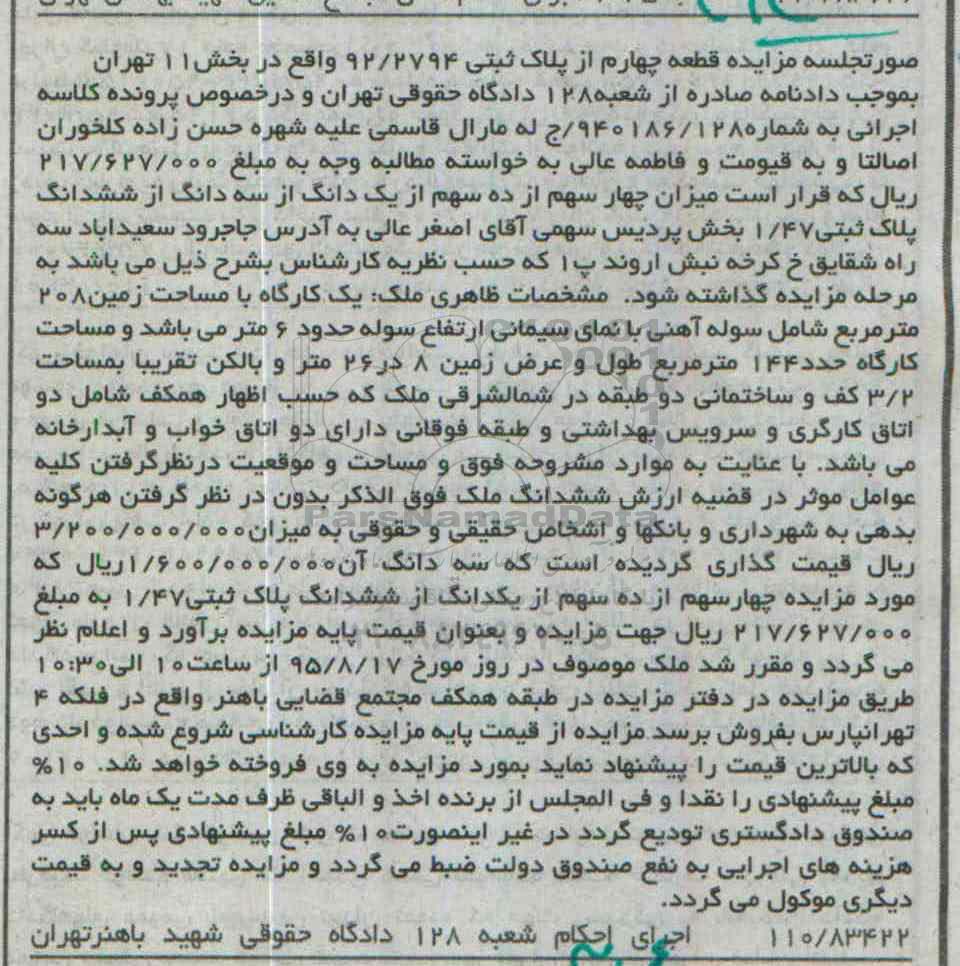 صورتجلسه مزایده قطعه چهارم از پلاک ثبتی ۹۲/۲۷۹۴ واقع در بخش۱۱ تهران
بموجب دادنامه صادره از شعبه۱۲۸ دادگاه حقوقی تهران و درخصوص پرونده کلاسه
اجرائی به شماره۹۴۰۱۸۶/۱۲۸/ج له مارال قاسمی علیه شهره حسن زاده کلخوران
اصالتا و به قیومت و فاطمه عالی به خواسته مطالبه وجه به مبلغ ۲۱۷/۶۲۷/۰۰۰
ریال که قرار است میزان چهار سهم از ده سهم از یک دانگ از سه دانگ از ششدانگ
پلاک ثبتی۱/۴۷ بخش پردیس سهمی آقای اصغر عالی به آدرس جاجرود سعیداباد سه
راه شقایق خ کرخه نبش اروند پ۱ که حسب نظریه کارشناس بشرح ذیل می باشد به
مرحله مزایده گذاشته شود. مشخصات ظاهری ملک: یک کارگاه با مساحت زمین۲۰۸
مترمربع شامل سوله آهنی با نمای سیمانی ارتفاع سوله حدود ۶ متر می باشد و مساحت
کارگاه حدد۱۴۴ مترمربع طول و عرض زمین ۸ در۲۶ متر و بالکن تقریبا بمساحت
۳/۲ کف و ساختمانی دو طبقه در شمالشرقی ملک که حسب اظهار همکف شامل دو
اتاق کارگری و سرویس بهداشتی و طبقه فوقانی دارای دو اتاق خواب و آبدارخانه
می باشد. با عنایت به موارد مشروحه فوق و مساحت و موقعیت درنظرگرفتن کلیه
عوامل موثر در قضیه ارزش ششدانگ ملک فوق الذکر بدون در نظر گرفتن هرگونه
بدهی به شهرداری و بانکها و اشخاص حقیقی و حقوقی به میزان۳/۲۰۰/۰۰۰/۰۰۰
ParsNamadData
ریال قیمت گذاری گردیده است که سه دانگ آن۱/۶۰۰/۰۰۰/۰۰۰ریال که
مورد مزایده چهارسهم از ده سهم از یکدانگ از ششدانگ پلاک ثبتی۱/۴۷ به مبلغ
۲۱۷/۶۲۷/۰۰۰ ریال جهت مزایده و بعنوان قیمت پایه مزایده برآورد و اعلام نظر
می گردد و مقرر شد ملک موصوف در روز مورخ ۹۵/۸/۱۷ از ساعت۱۰ الی۱۰:۳۰
طریق مزایده در دفتر مزایده در طبقه همکف مجتمع قضایی باهنر واقع در فلکه ۴
تهرانپارس بفروش برسد.مزایده از قیمت پایه مزایده کارشناسی شروع شده و احدی
که بالاترین قیمت را پیشنهاد نماید بمورد مزایده به وی فروخته خواهد شد. ۱۰%
مبلغ پیشنهادی را نقدا و فی المجلس از برنده اخذ و الباقی ظرف مدت یک ماه باید به
صندوق دادگستری تودیع گردد در غیر اینصورت۱۰% مبلغ پیشنهادی پس از کسر
هزینه های اجرایی به نفع صندوق دولت ضبط می گردد و مزایده تجدید و به قیمت
دیگری موکول می گردد.
۱۱۰/۸۳۴۲۲ اجرای احکام شعبه ۱۲۸ دادگاه حقوقی شهید باهنرتهران